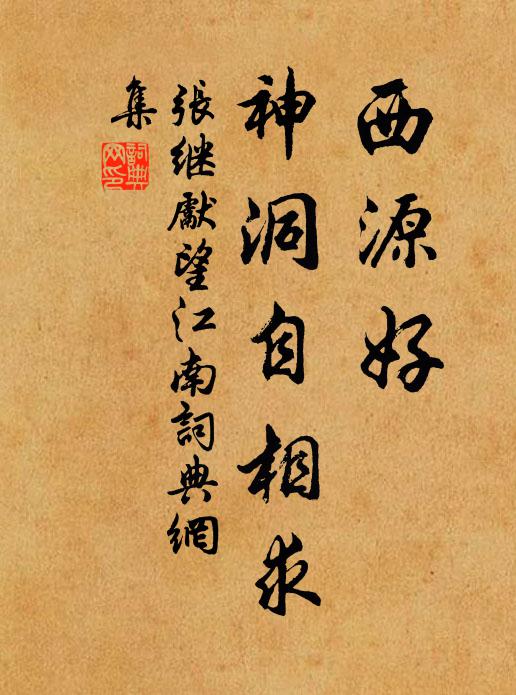 西源好
神洞自相求
張继獻望江南詞典網
集
詞典
网印